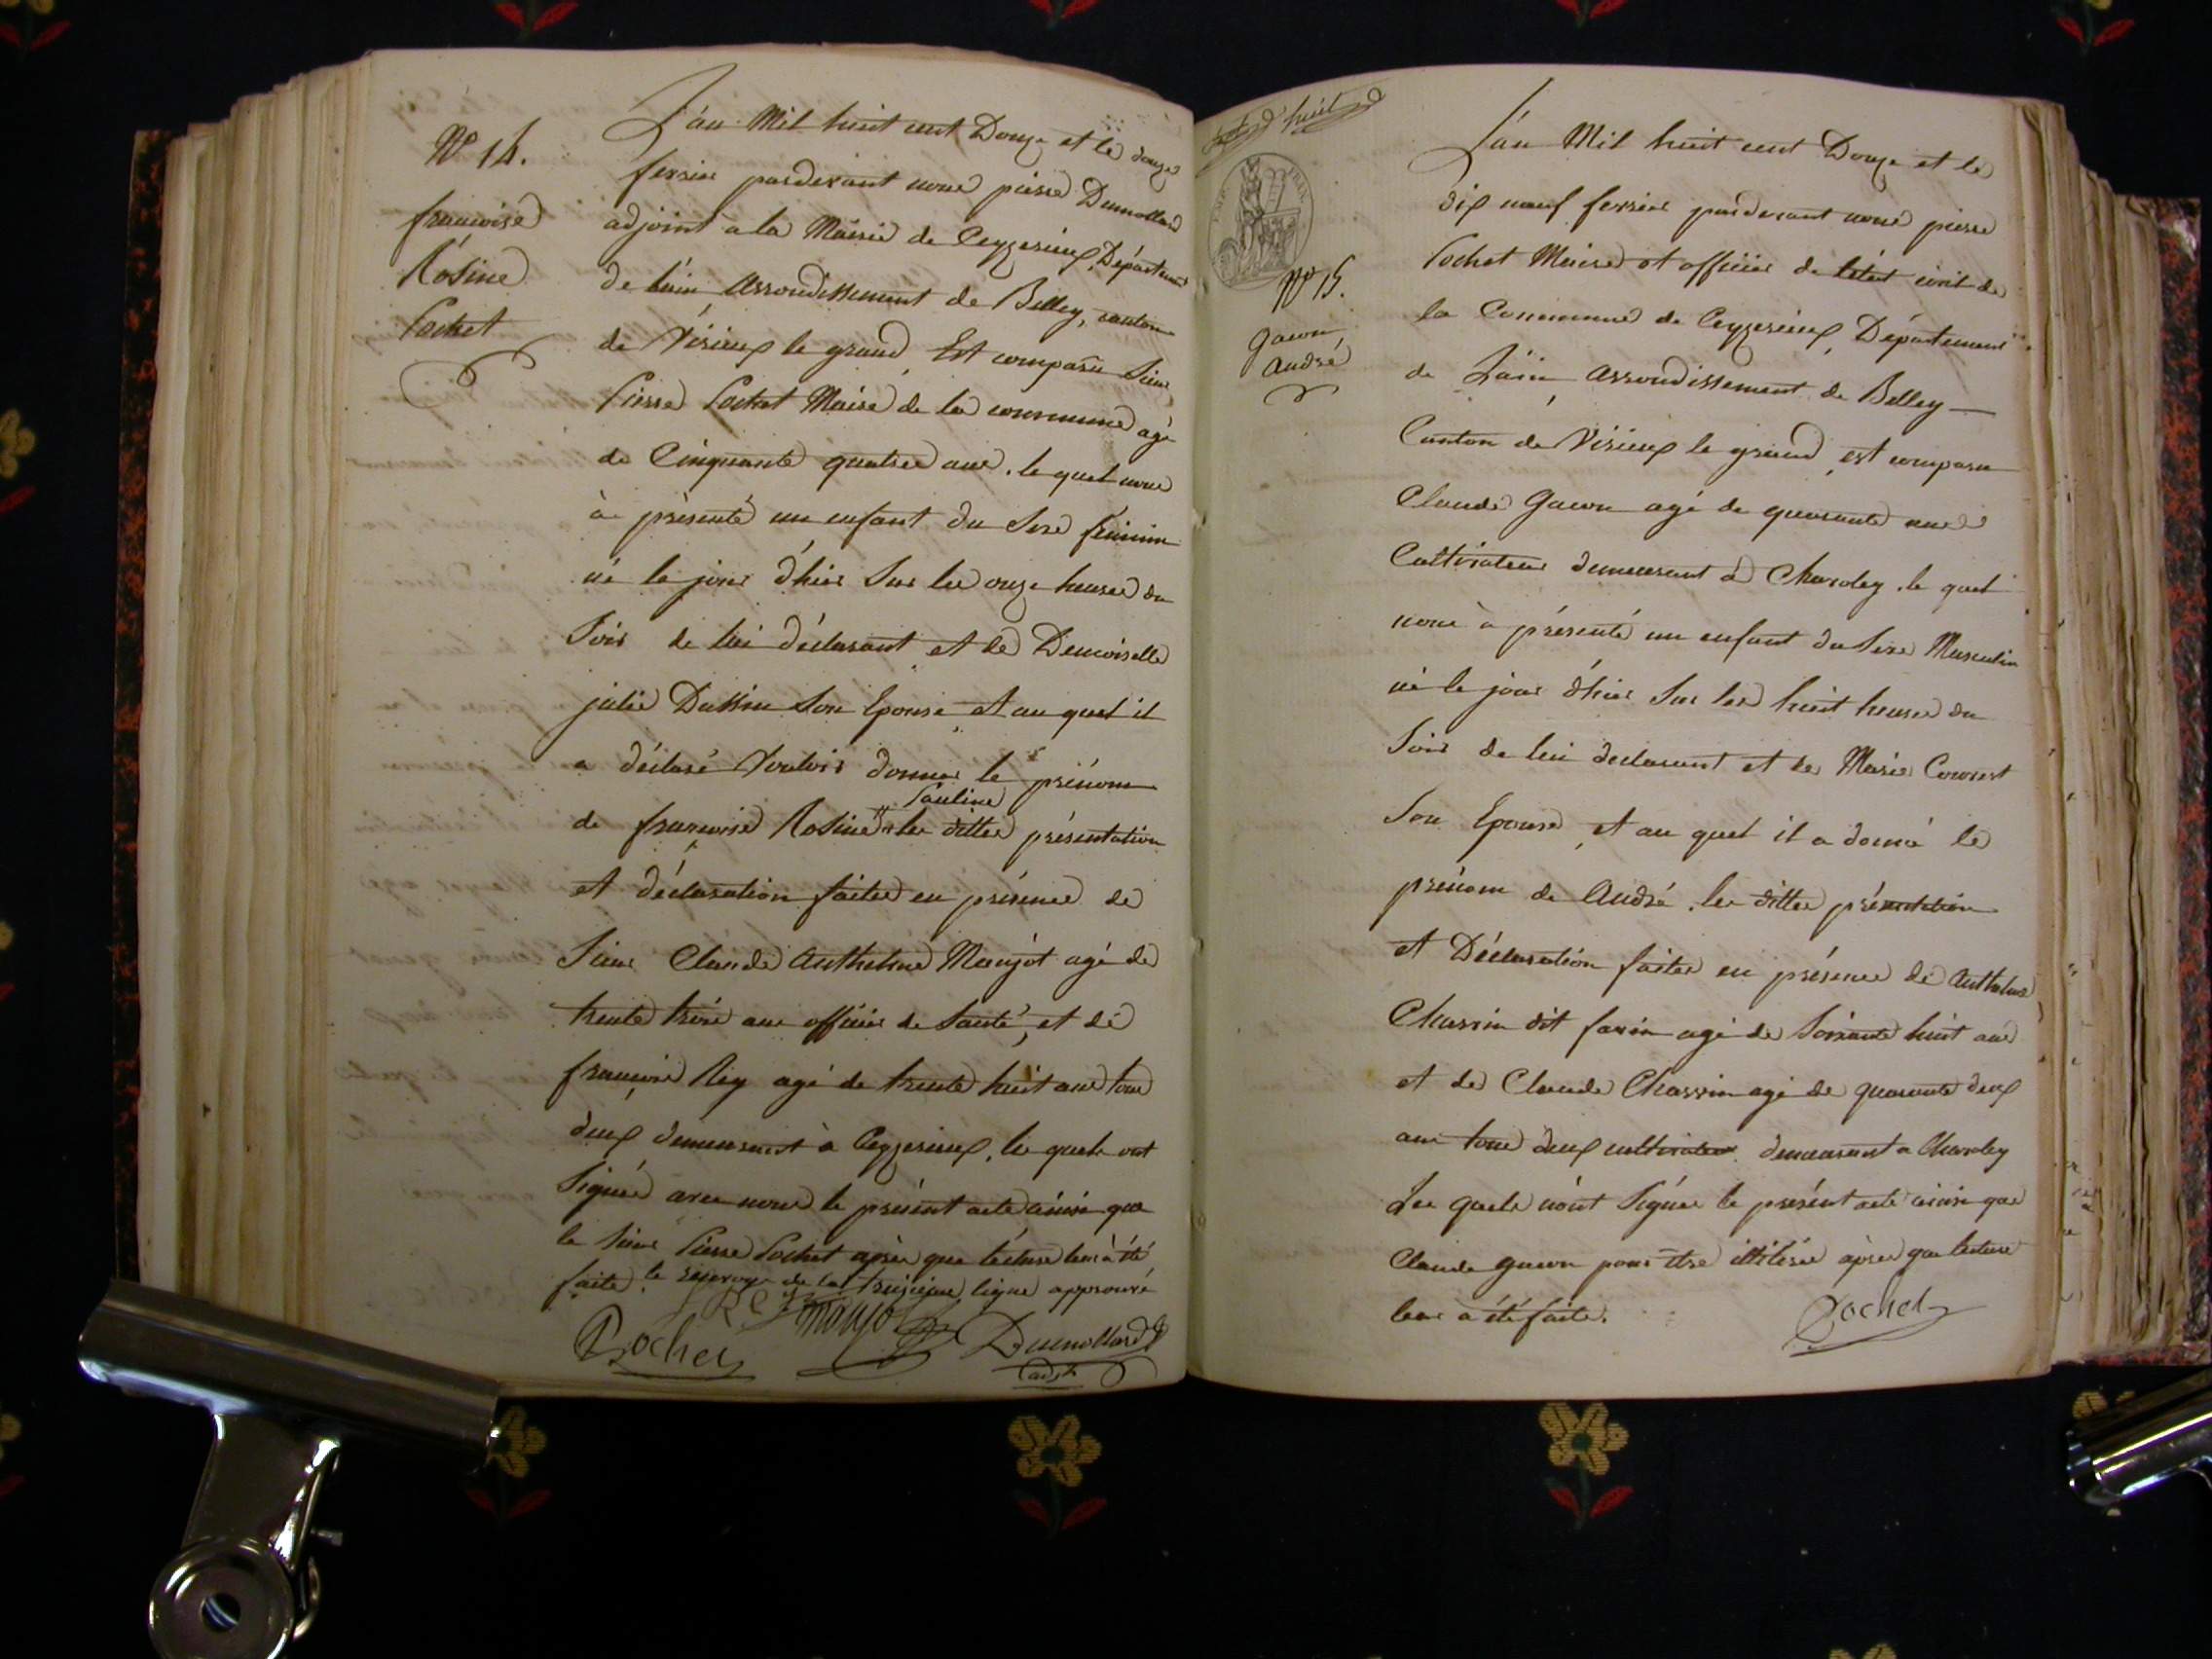 Nº 14.
francoise
Rosine
Pochet
L'an Mil huit cent Douze et le douze
fevrier pardevant nous pierre Dumollard
adjoint a la Mairie de Ceyzerieux, Département
de l'ain, arrondissement de Belley, canton
de Virieux le grand, Est comparu Sieur
Pierre Pochet Maire de la commune agé
de Cinquante quatre ans. le quel nous
à présenté un enfant du Sexe féminin
né le jour d'hier Sur les onze heures du
Soir de lui déclarant et de Demoiselle
julie Son Epouse, et au quel il
a déclaré Vouloir donner le prénom
Pauline
de francoise Rosine les dittes présentation
et déclaration faites en présence de
Sieur Claude Anthelme Maujot agé de
trente trois ans officier de Santé, et de
francois Rey agé de trente huit ans tous
deux demeurant à Ceyzerieux. les quels ont
Signés avec nous le présent acte ainsi que
le Sieur Pierre Pochet après que lecture leur à été
faite. le renvoye de la treizieme ligne approuvé
Rey Maujot
Pochet Dumollard
adjt
huit
Nº 15.
Gacon
André
L'an Mil huit cent Douze et le
dix neuf fevrier pardevant nous pierre
Pochet Maire et officier de l'état civil de
la Commune de Ceyzerieux, Département
de L'ain, arrondissement de Belley
Canton de Virieux le grand, est comparu
Claude Gacon agé de quarante ans
Cultivateur demeurant à Charoley. le quel
nous à présenté un enfant du Sexe Masculin
né le jour d'hier Sur les huit heures du
Soir de lui declarant et de Marie
Son Epouse, et au quel il a donné le
prénom de André. les dittes présentation
et Déclaration faites en présence de Anthelme
Charvin dit farin agé de Soixante huit ans
et de Claude Charvin agé de quarante deux
ans tous deux cultivateur demeurant a Charoley
Les quels n'ont Signés le présent acte ainsi que
Claude Gacon pour être illitérés après que lecture
leur a été faite.
Pochet